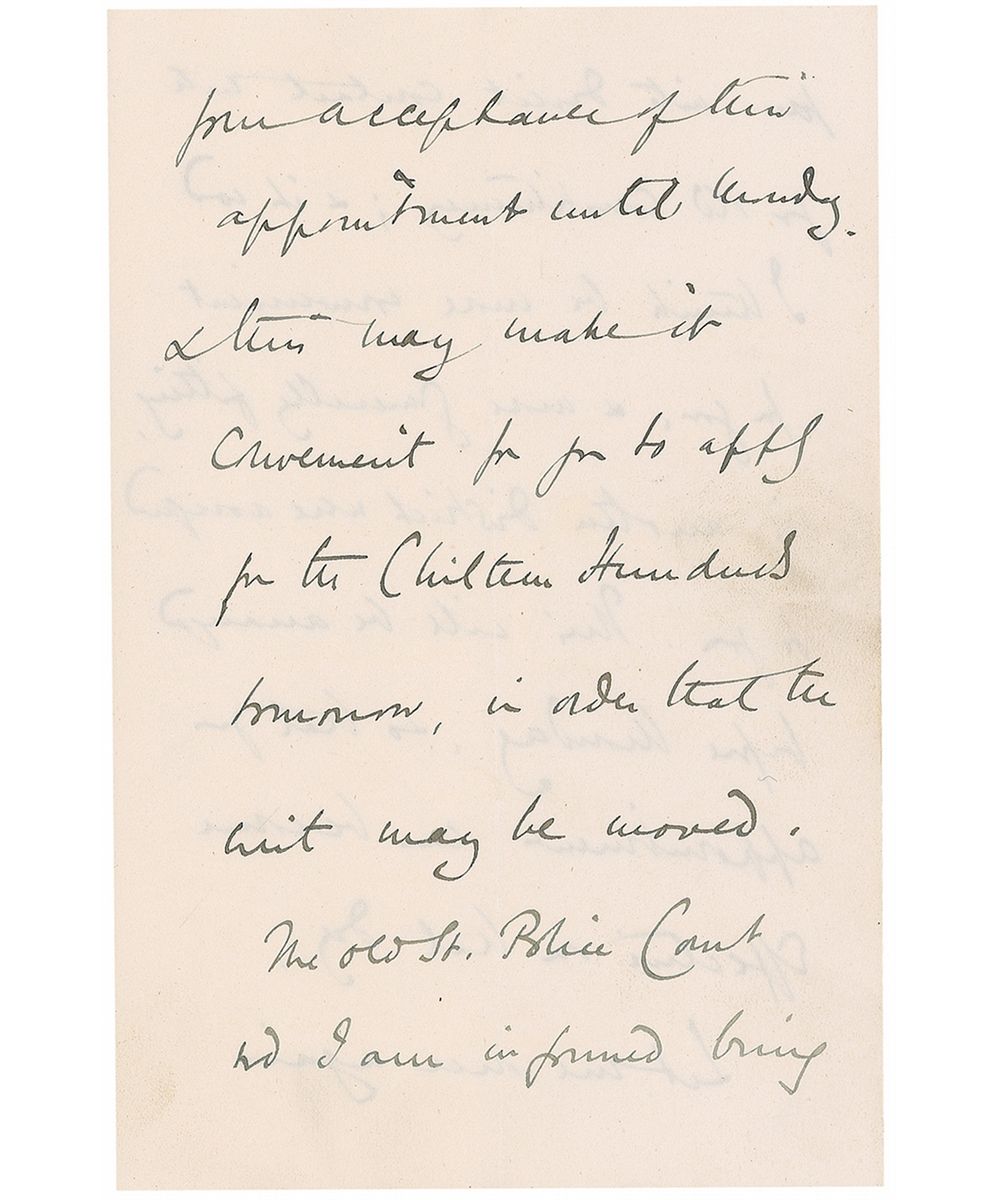 your acceptance of this
appointment until Monday.
& this may make it
convenient for you to apply
for the Chiltern Hundreds
tomorrow, in order that the
writ may be moved.
The Old St. Police Court
wd I am informed bring